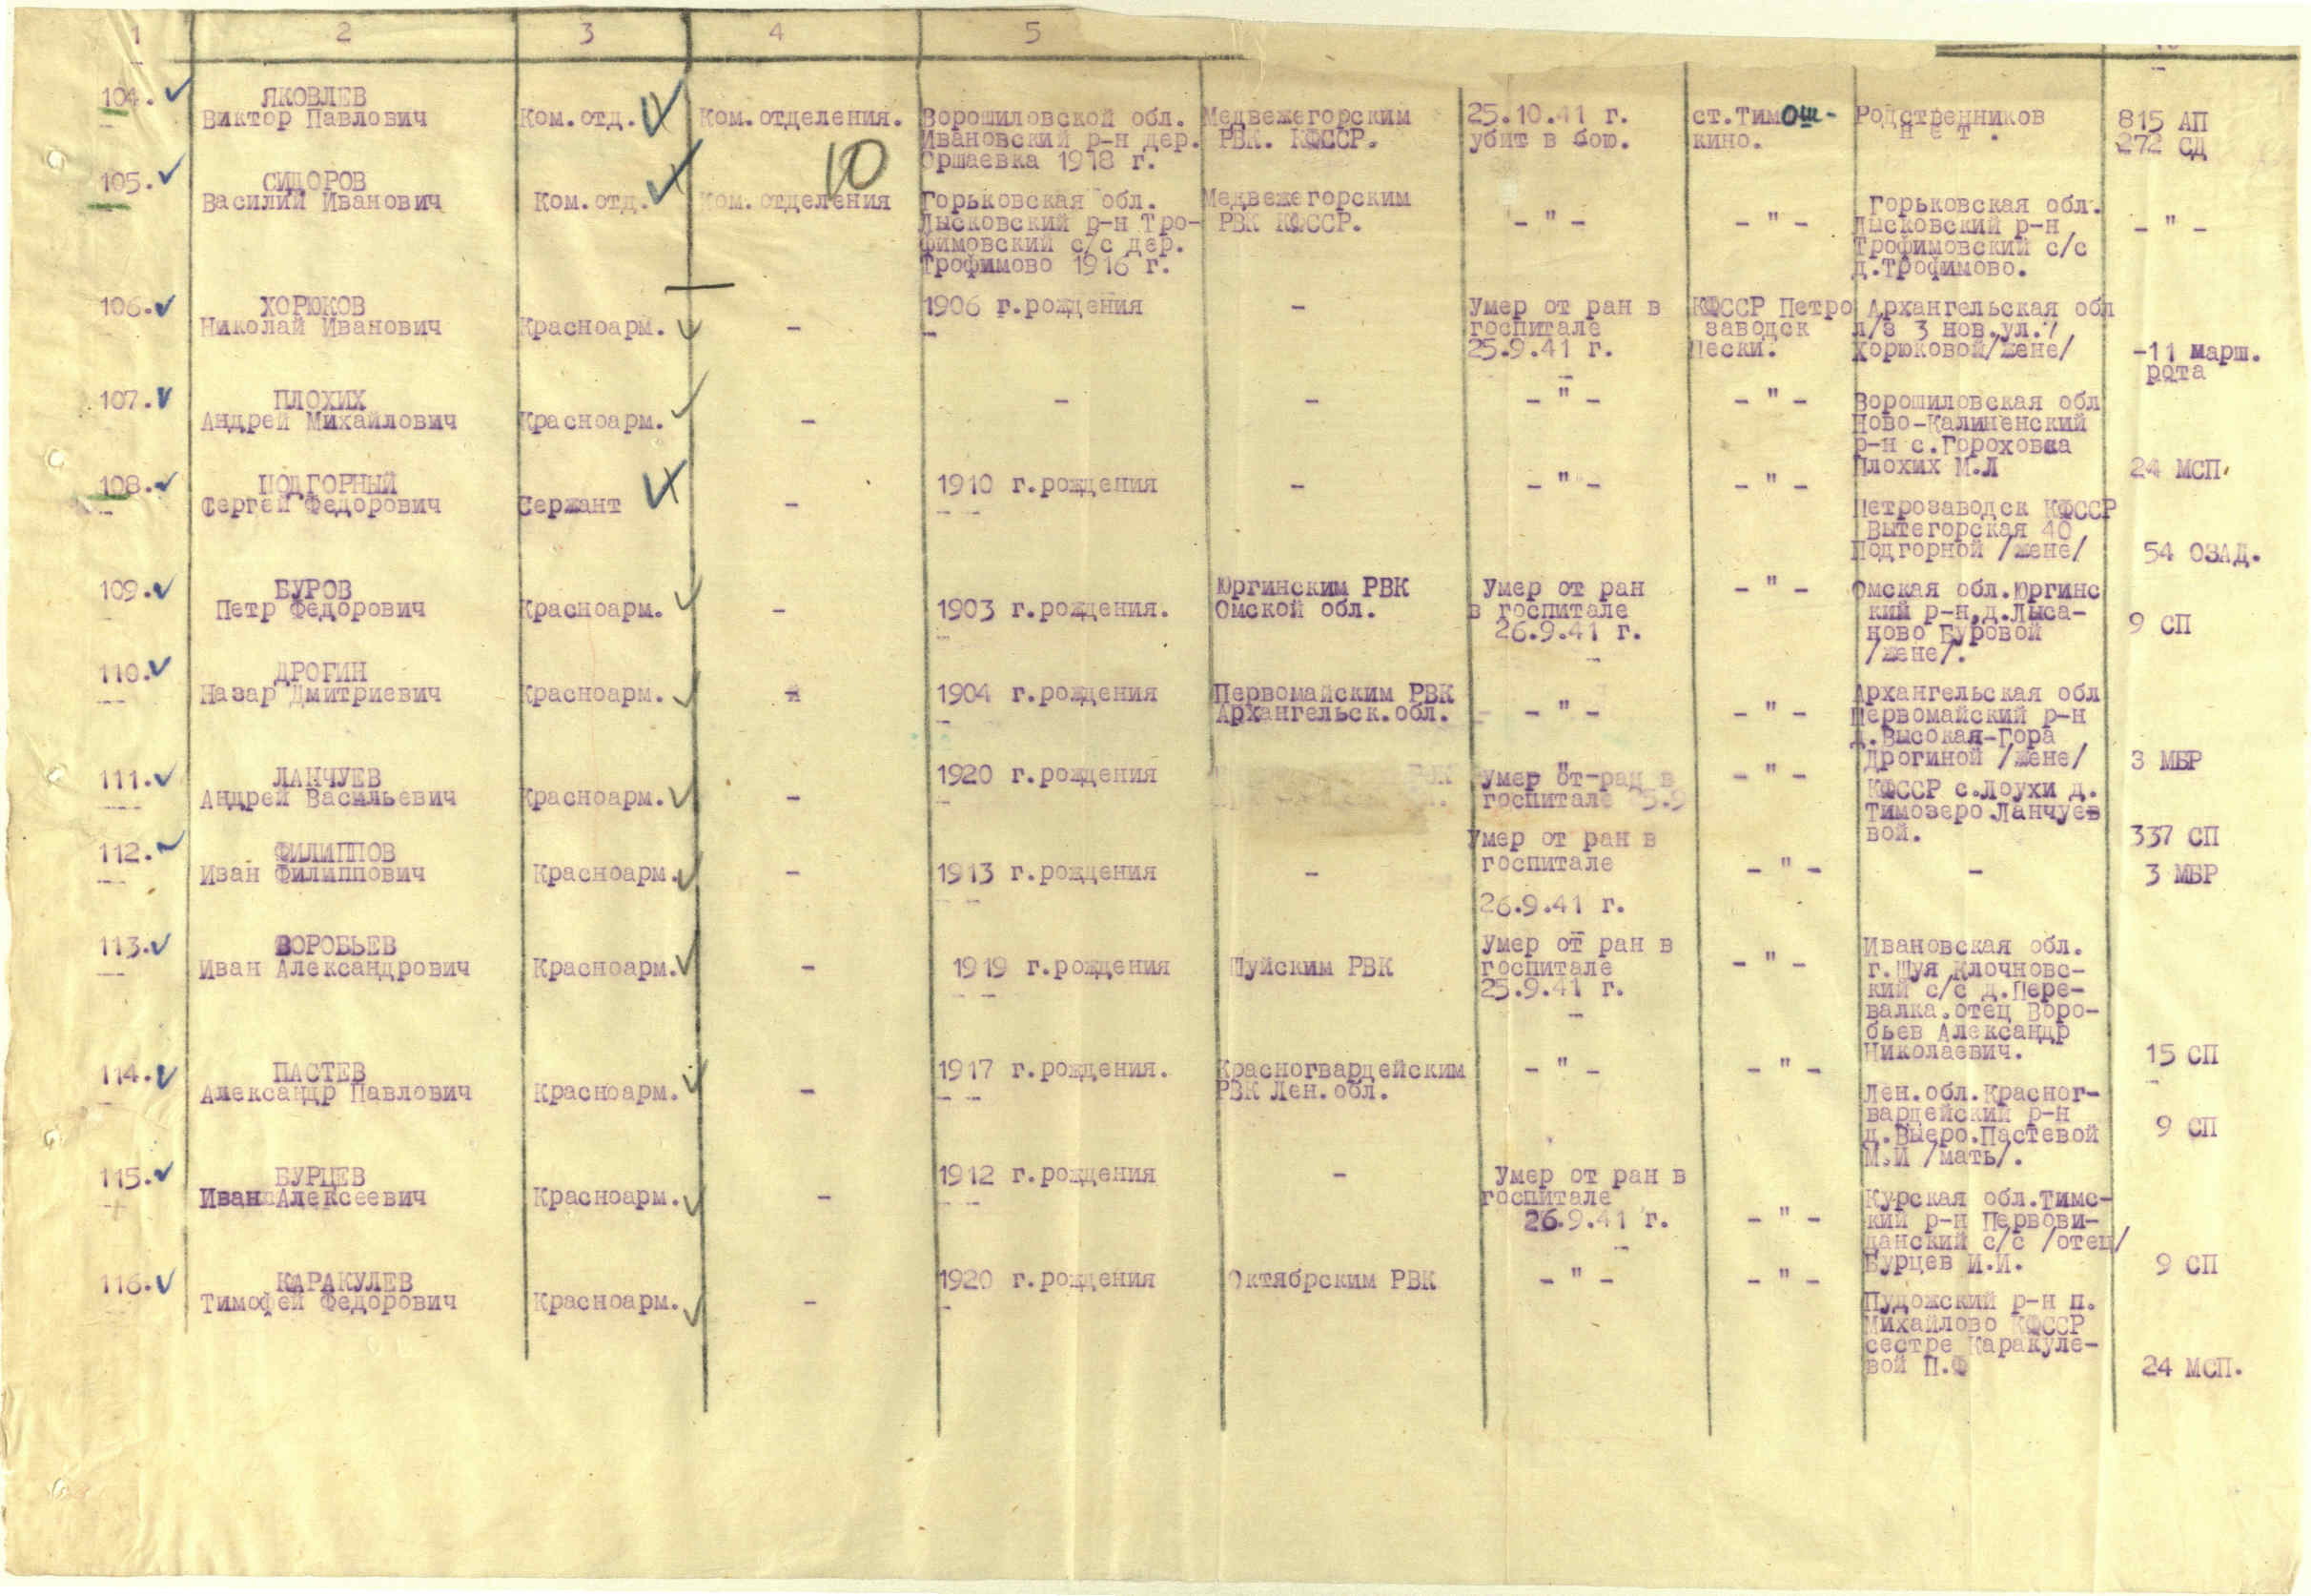 1 2 3 4 5
104. ЯКОВЛЕВ
Виктор Павлович Ком.отд. Ком.отделения. Ворошиловской обл. Медвежегорским 25.10.41 г. ст.Тимош- Родственников 815 АП
Ивановский р-н дер. РВК. КФССР. убит в бою. кино. нет. 272 СД
Оршаевка 1918 г.
10
105. СИДОРОВ
Василий Иванович Ком.отд. Ком.отделения Горьковская обл. Медвежегорским Горьковская обл.
Лысковский р-н Тро- РВК КФССР. - " - - " - Лысковский р-н - " -
фимовский с/с дер. Трофимовский с/с
Трофимово 1916 г. д.Трофимово.
106. ХОРЮКОВ 1906 г.рождения - Умер от ран в КФССР Петро Архангельская обл
Николай Иванович Красноарм. - госпитале заводск л/з 3 нов.ул.7
25.9.41 г. Пески. Хорюковой/жене/ -11 марш.
рота
107. ПЛОХИХ - - - " - - " - Ворошиловская обл
Андрей Михайлович Красноарм. - Ново-Калиненский
р-н с.Гороховка
Плохих М.Л 24 МСП.
108. ПОДГОРНЫЙ 1910 г.рождения - - " - - " -
Сергей Федорович Сержант - Петрозаводск КФССР
Вытегорская 40
Подгорной /жене/ 54 ОЗАД.
109. БУРОВ Юргинским РВК Умер от ран - " - Омская обл.Юргинс
Петр Федорович Красноарм. - 1903 г.рождения. Омской обл. в госпитале кий р-н,д.Лыса-
26.9.41 г. ново Буровой 9 СП
/жене/.
110. ДРОГИН
Назар Дмитриевич Красноарм. - 1904 г.рождения Первомайским РВК Архангельская обл
Архангельск.обл. - " - - " - Первомайский р-н
д.Высокая-Гора
Дрогиной /жене/ 3 МБР
111. ЛАНЧУЕВ 1920 г.рождения Умер от ран в - " - КФССР с.Лоухи д.
Андрей Васильевич Красноарм. - госпитале 5.9 Тимозеро.Ланчуев
вой. 337 СП
112. ФИЛИППОВ Умер от ран в
Иван Филиппович Красноарм. - 1913 г.рождения - госпитале - " - - 3 МБР
26.9.41 г.
113. ВОРОБЬЕВ Умер от ран в Ивановская обл.
Иван Александрович Красноарм. - 1919 г.рождения Шуйским РВК госпитале - " - г.Шуя Клочновс-
25.9.41 г. кий с/с д.Пере-
валка.отец Воро-
бьев Александр
Николаевич. 15 СП
114. ПАСТЕВ 1917 г.рождения. Красногвардейским - " - - " -
Александр Павлович Красноарм. - РВК Лен.обл. Лен.обл.Красног-
вардейский р-н
д.Выеро.Пастевой 9 СП
М.И /мать/.
115. БУРЦЕВ 1912 г.рождения - Умер от ран в
Иван Алексеевич Красноарм. - госпитале Курская обл.Тимс-
26.9.41 г. - " - кий р-н Первови-
данский с/с /отец/
Бурцев И.И. 9 СП
116. КАРАКУЛЕВ 1920 г.рождения Октябрским РВК - " - - " -
Тимофей Федорович Красноарм. - Пудожский р-н п.
Михайлово КФССР
сестре Каракуле-
вой П.Ф 24 МСП.